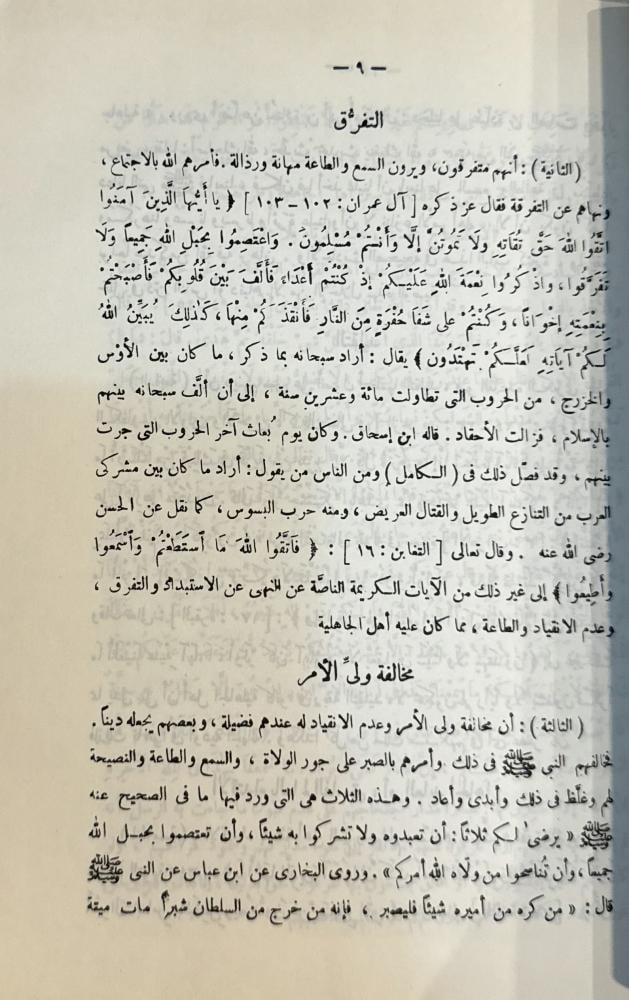 — ٩ —
التفرُّق
( الثانية ) : أنهم متفرقون، ويرون السمع والطاعة مهانة ورذالة . فأمرهم الله بالاجتماع ،
ونهاهم عن التفرقة فقال عز ذكره [ آل عمران : ١٠٢ – ١٠٣ ] ﴿ يا أَيُّها الَّذِينَ آمَنُوا
اتَّقُوا اللهَ حَقَّ تُقاتِهِ ولَا تَمُوتُنَّ إلَّا وَأَنْتُمْ مُسْلِمُونَ . وَاعْتَصِمُوا بِحَبْلِ اللهِ جَمِيعاً وَلَا
تَفَرَّقُوا ، واذْكُرُوا نِعْمَةَ اللهِ عَلَيْكُمْ إذْ كُنْتُمْ أَعْدَاءَ فَأَلَّفَ بَيْنَ قُلُوبِكُمْ فَأَصْبَحْتُمْ
بِنِعْمَتِهِ إخْوَاناً ، وَكُنْتُمْ على شَفَا حُفْرَةٍ مِنَ النَّارِ فَأَنْقَذَكُمْ مِنْهَا ، كَذٰلِكَ يُبَيِّنُ اللهُ
لَكُمْ آيَاتِهِ لَعَلَّكُمْ تَهْتَدُون ﴾ يقال : أراد سبحانه بما ذكر ، ما كان بين الأوْس
والخزرج ، من الحروب التى تطاولت مائة وعشرين سنة ، إلى أن ألَّف سبحانه بينهم
بالإسلام ، فزالت الأحقاد . قاله ابن إسحاق . وكان يوم بُعاث آخر الحروب التى جرت
بينهم ، وقد فصّل ذلك فى ( الكامل ) ومن الناس من يقول : أراد ما كان بين مشركى
العرب من التنازع الطويل والقتال العريض ، ومنه حرب البسوس ، كما نقل عن الحسن
رضى الله عنه . وقال تعالى [ التغابن : ١٦ ] : ﴿ فَاتَّقُوا اللهَ مَا ٱسْتَطَعْتُمْ وَٱسْمَعُوا
وأَطِيعُوا ﴾ إلى غير ذلك من الآيات الكريمة الناصَّة عن النهى عن الاستبداد والتفرق ،
وعدم الانقياد والطاعة ، مما كان عليه أهل الجاهلية
مخالفة ولىِّ الأمر
( الثالثة ) : أن مخالفة ولى الأمر وعدم الانقياد له عندهم فضيلة ، وبعضهم يجعله ديناً .
فخالفهم النبى ﷺ فى ذلك وأمرهم بالصبر على جور الولاة ، والسمع والطاعة والنصيحة
لهم وغلَّظ فى ذلك وأبدى وأعاد . وهذه الثلاث هى التى ورد فيها ما فى الصحيح عنه
ﷺ « يرضى لكم ثلاثاً : أن تعبدوه ولا تشركوا به شيئاً ، وأن تعتصموا بحبل الله
جميعاً ، وأن تُناصحوا من ولّاه الله أمركم » . وروى البخارى عن ابن عباس عن النبى ﷺ
قال : « من كره من أميره شيئاً فليصبر ، فإنه من خرج من السلطان شبراً مات ميتة